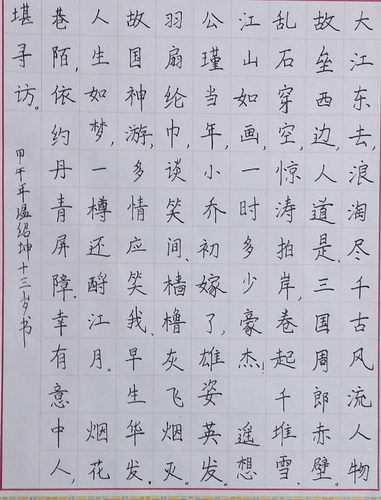 大江东去,浪淘尽千古风流人物
故垒西边,人道是,三国周郎赤壁。
乱石穿空,惊涛拍岸,卷起千堆雪。
江山如画,一时多少豪杰!遥想
公瑾当年,小乔初嫁了,雄姿英发。
羽扇纶巾,谈笑间,樯橹灰飞烟灭。
故国神游,多情应笑我,早生华发。
人生如梦,一樽还酹江月。烟花
巷陌,依约丹青屏障。幸有意中人,
堪寻访。
甲午年温绍坤十三岁书